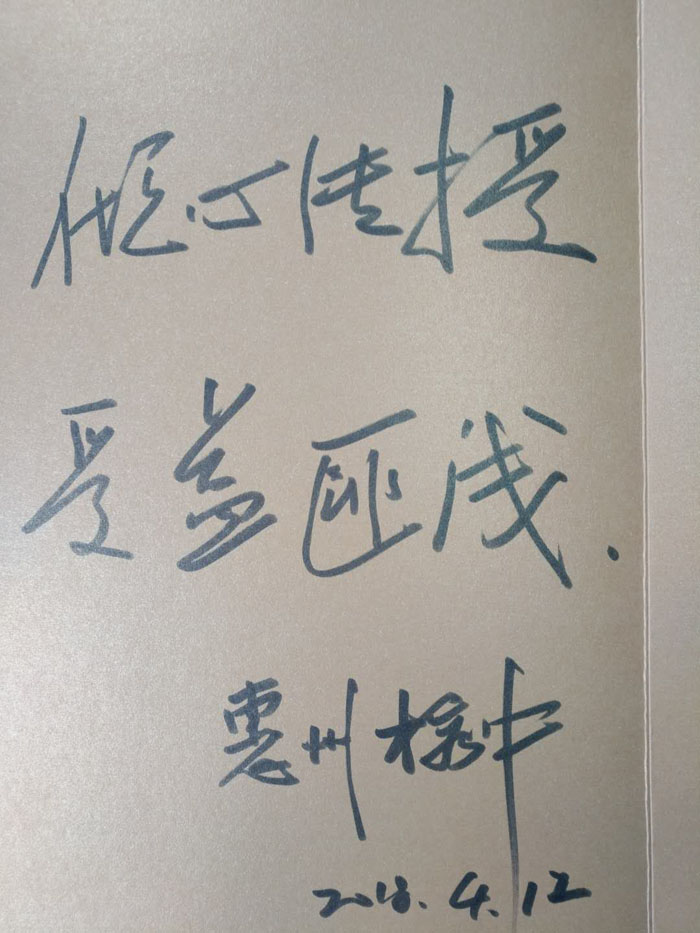 倾心传授
受益匪浅.
惠州 中
2018.4.12